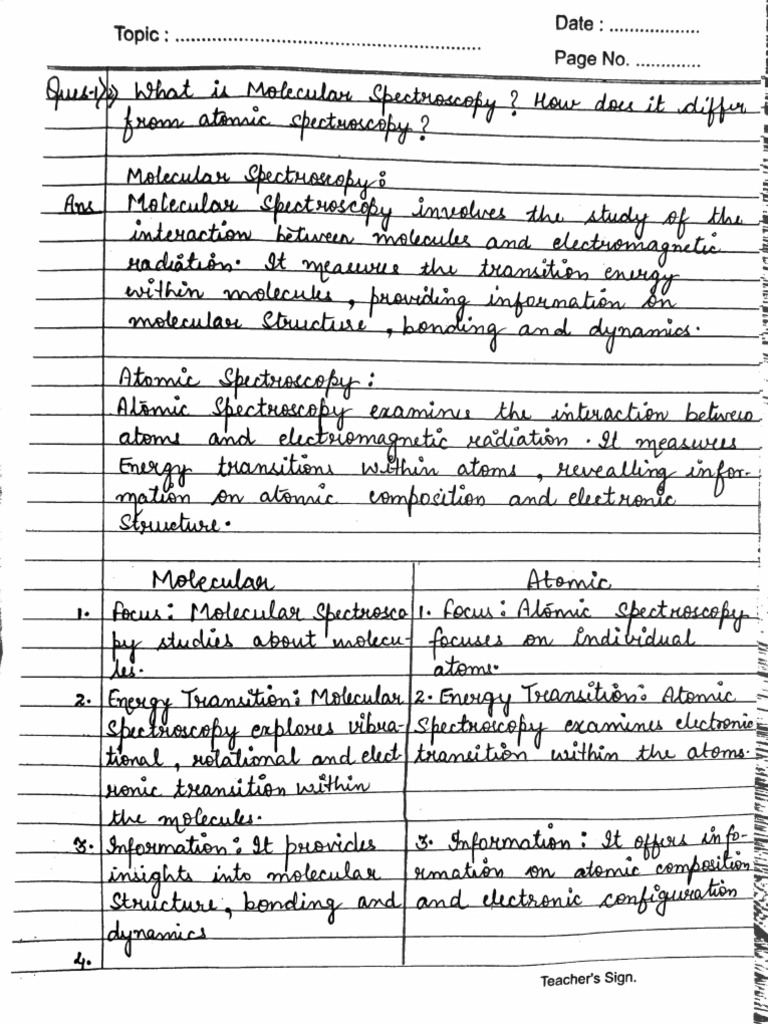 Topic : ........................................................
Date : ..................
Page No. .............
Ques-1) What is Molecular Spectroscopy? How does it differ
from atomic spectroscopy?
Molecular Spectroscopy:
Ans Molecular Spectroscopy involves the study of the
interaction between molecules and electromagnetic
radiation. It measures the transition energy
within molecules, providing information on
molecular Structure, bonding and dynamics.
Atomic Spectroscopy:
Atomic Spectroscopy examines the interaction between
atoms and electromagnetic radiation. It measures
Energy transitions within atoms, revealling infor-
mation on atomic composition and electronic
Structure.
Molecular
1. Focus: Molecular Spectrosco
py studies about molecu-
les.
2. Energy Transition: Molecular
Spectroscopy explores vibra-
tional, rotational and elect-
ronic transition within
the molecules.
3. Information: It provides
insights into molecular
Structure, bonding and
dynamics
4.
Atomic
1. Focus: Atomic Spectroscopy
focuses on individual
atoms.
2. Energy Transition: Atomic
Spectroscopy examines electronic
transition within the atoms.
3. Information: It offers info-
rmation on atomic composition
and electronic configuration
Teacher's Sign.